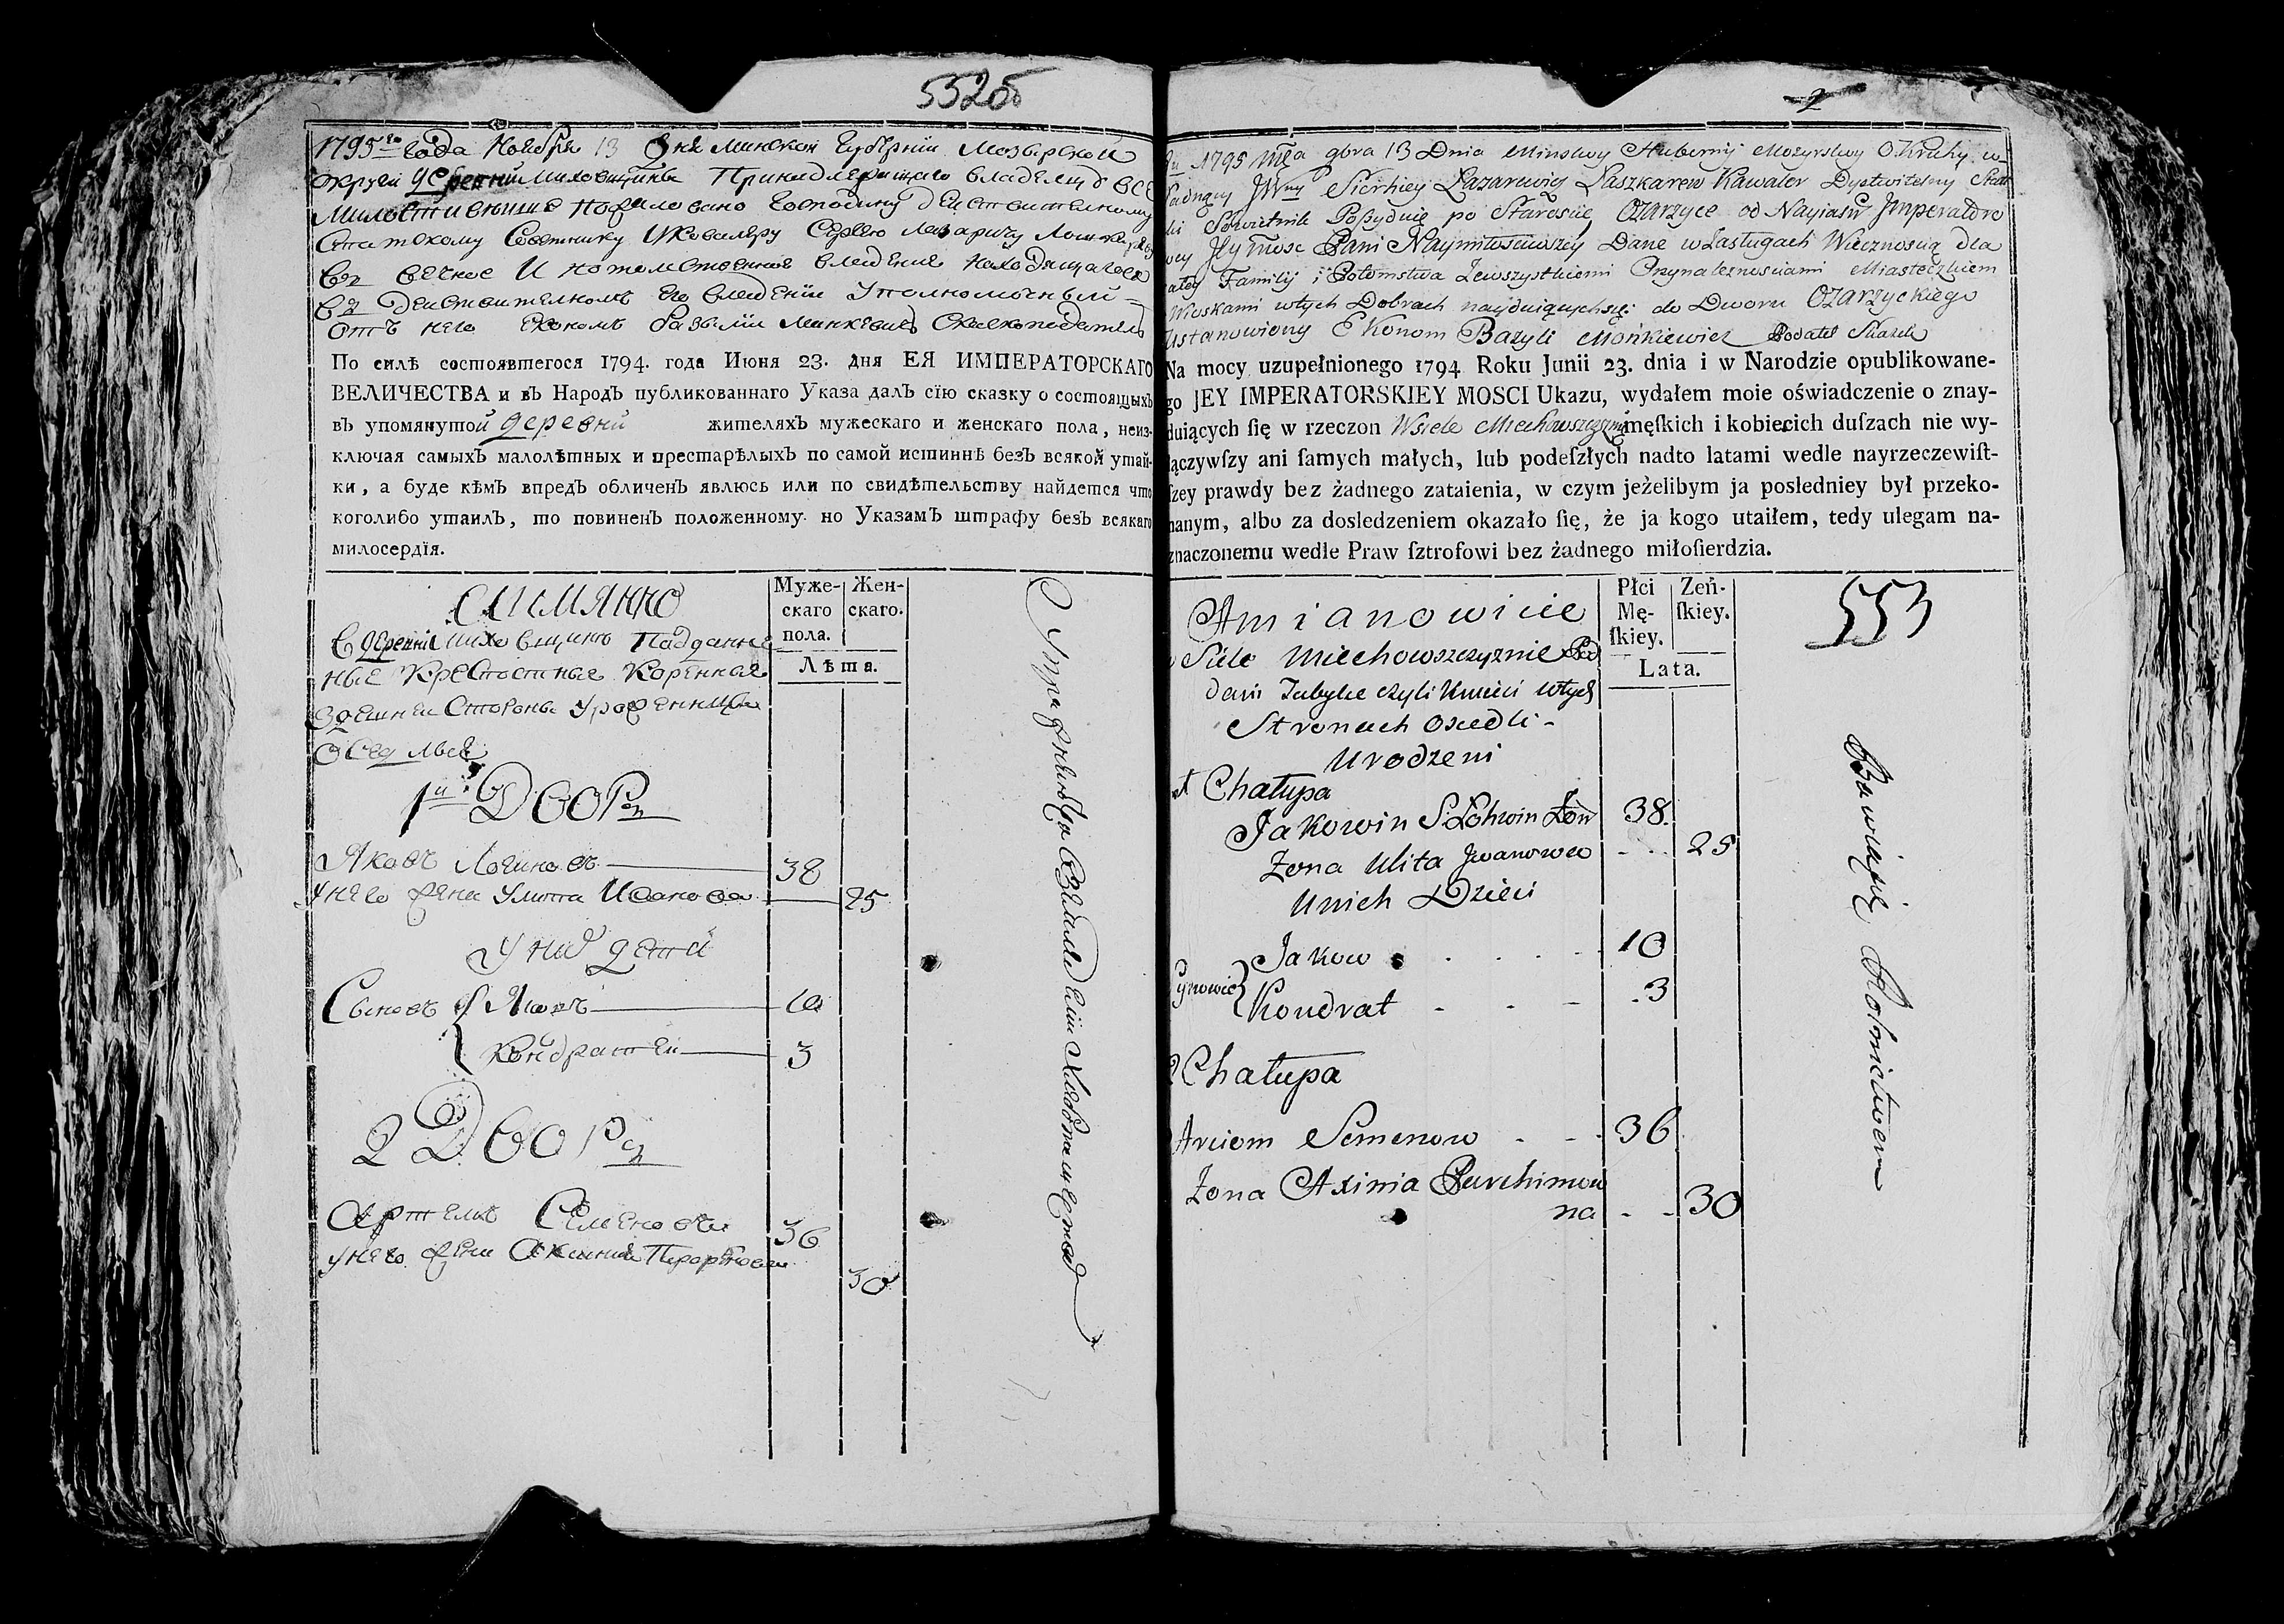 552об
1795го года Ноября 13 дня Минской Губернии Мозырской
округи деревни Миховщины Принадлежащаго владельцу все
Милостивейше пожаловано Господину действительному
Статскому Советнику И Кавалеру Сергею Лазаричу Лошкареву
въ вечное И потомственное владение находящагося
въ действителномъ его владении уполномоченный
отъ него Економъ Базылий Манкевичъ Сказкоподатель
По силѣ состоявтегося 1794. года Июня 23. дня ЕЯ ИМПЕРАТОРСКАГО
ВЕЛИЧЕСТВА и въ Народъ публикованнаго Указа далъ сїю сказку о состоящыхъ
въ упомянутой деревни жителяхъ мужескаго и женскаго пола, неиз-
ключая самыхъ малолѣтныхъ и престарѣлыхъ по самой истиннѣ безъ всякой утай-
ки, а буде кѣмъ впредъ обличенъ явлюсь или по свидѣтельству найдется что
коголибо утаилъ, то повиненъ положенному по Указамъ штрафу безъ всякаго
милосердїя.
Муже-
скаго
пола.
Жен-
скаго.
Лѣта.
А ИМЯННО
В деревни Миховщине Паддан
ные Крестостные Коренные
здешней Стороны Уроженцы
оседлые
1й Дворъ
Яковъ Логиновъ 38
У него жена Улита Иванова 25
У них дети
Сыновъ { Яковъ 10
Кондратей 3
2 Дворъ
Артемъ Семеновъ 36
У него жена Аксиния 30
Упражняются в земледелии Хлебопашеством
2
1795 Mca gbra 13 Dnia Minskey Hubernij Mozyrskey Okruhy w
Jmny Sierhiey Lazarewicz Laszkarew Kawaler Dystwitelny Stat
ski Sowietnik Possyduie po Staroscie Ozarzyce od Nayiasn Jmperatoro
wey Jeymosc Pani Naymitosciwszey Dane w Zasługach Wiecznoscią dla
całey Familij i Potomstwa Zewszystkiemi Przynaleznosciami Miasteczkiem
Wioskami wtych Dobrach nayduiącychsię do Dworu Ozarzyckiego
Ustanowiony Ekonom Bazyli Mońkiewicz Podatel Skazek
Na mocy uzupełnionego 1794 Roku Junii 23. dnia i w Narodzie opublikowane-
go JEY IMPERATORSKIEY MOSCI Ukazu, wydałem moie oświadczenie o znay-
duiących ſię w rzeczon Wsiele Miechowszczyznie męſkich i kobiecich duſzach nie wy-
łączywſzy ani ſamych małych, lub podeſzłych nadto latami wedle nayrzeczewiſt-
ſzey prawdy bez żadnego zataienia, w czym jeżelibym ja posledniey był przeko-
nanym, albo za dosledzeniem okazało ſię, że ja kogo utaiłem, tedy ulegam na-
znaczonemu wedle Praw ſztrofowi bez żadnego miłoſierdzia.
Płci
Mę-
ſkiey.
Zeń-
ſkiey.
Lata.
553
Amianowicie
Siele Miechowszczyznie Pod
dani Tubylce czyli Kmieci wtych
Stronach osiedli
Urodzeni
1 Chałupa
Jakowin S: Lohwin 38.
Zona Ulita Jwanowa 25
Unich Dzieci
Jakow 10
Synowie } Kondrat 3
2 Chałupa
Arciom Semenow 36
Zona Axinia Parchimow
na 30
Bawiąsię Rolnictwem